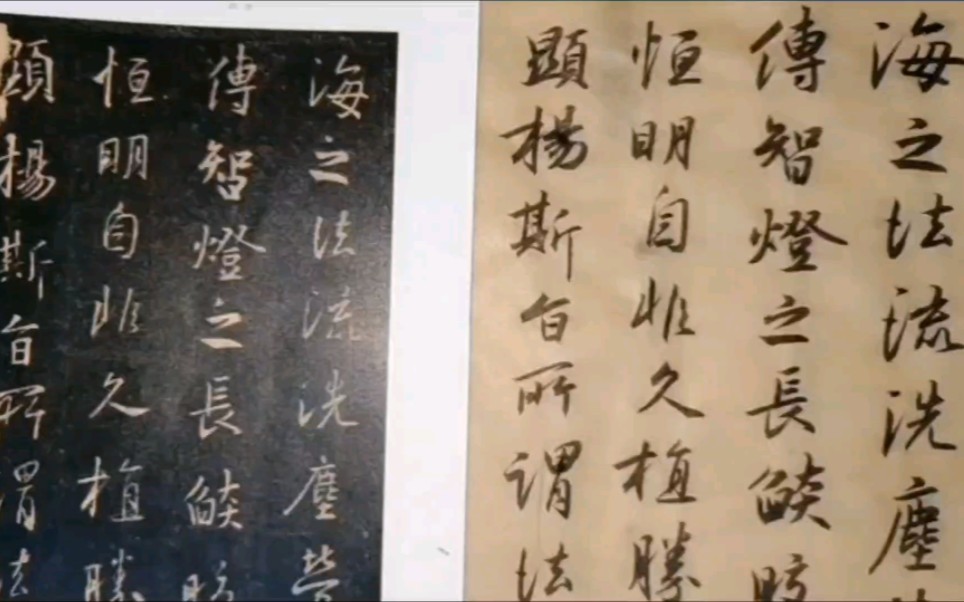 海之法流洗塵
傳智燈之長燄皎
恒明自非久植勝
顯揚斯旨所謂法
海之法流洗塵
傳智燈之長燄皎
恒明自非久植勝
顯揚斯旨所謂法